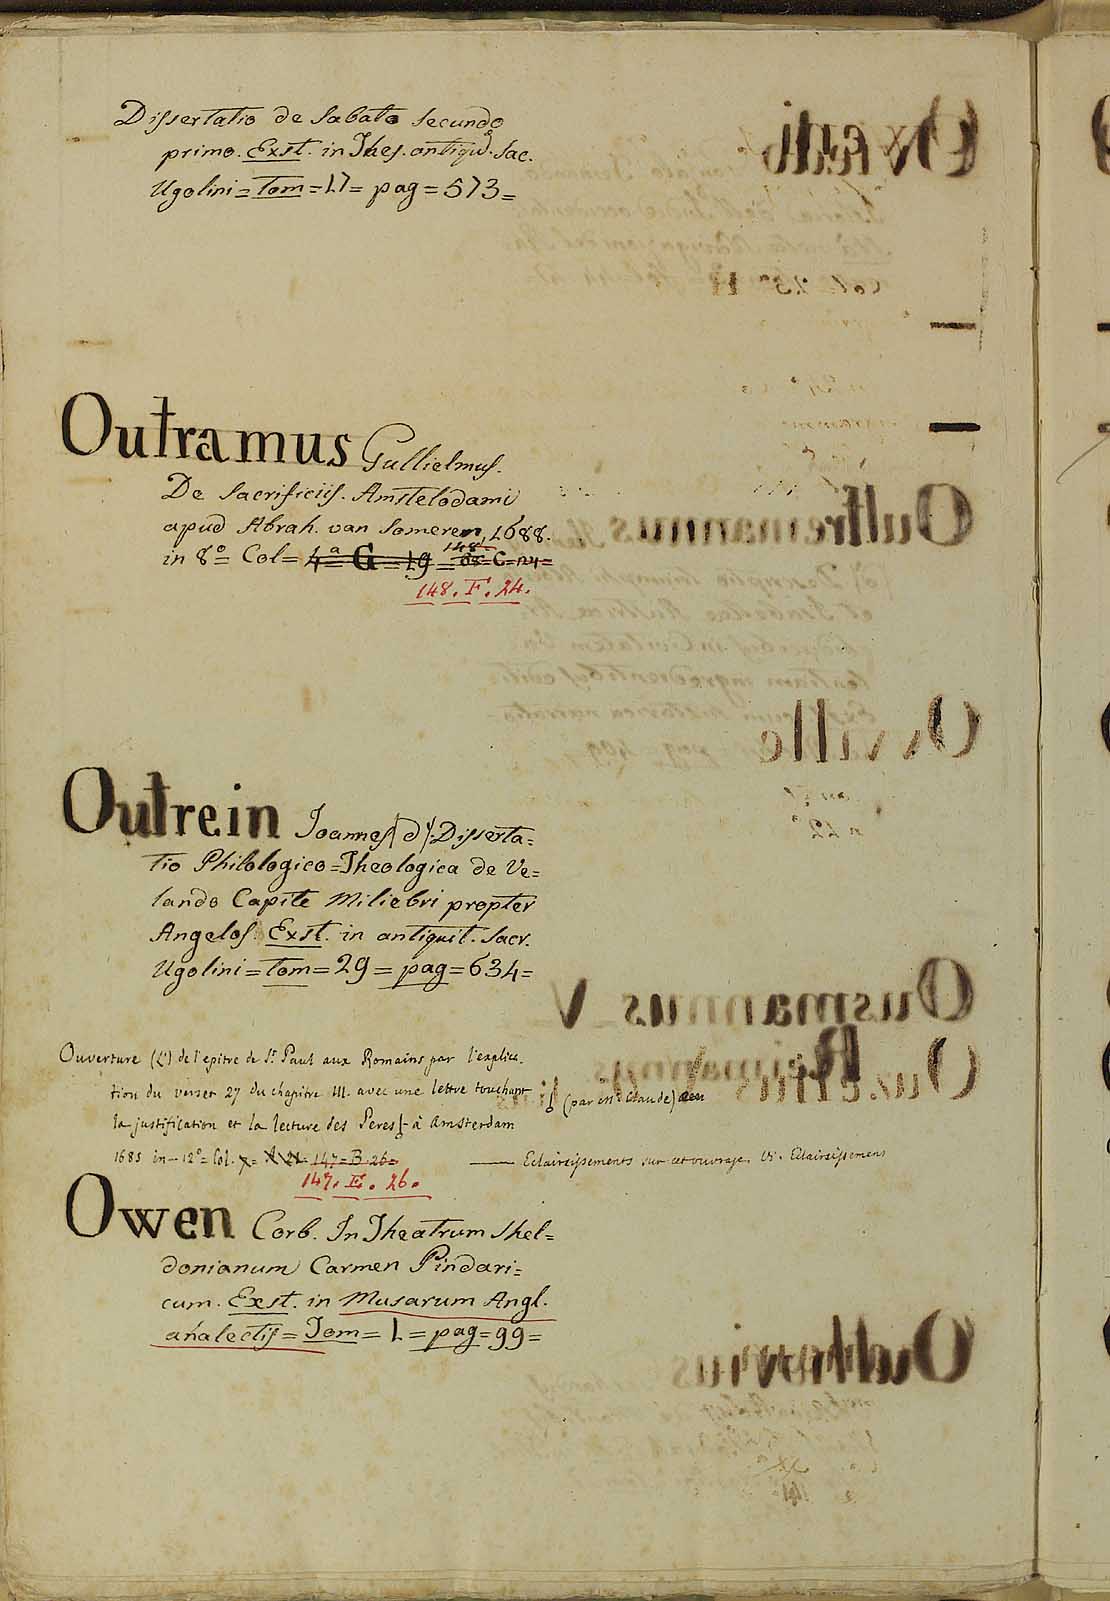 Dissertatio de Sabato Secundo
primo. Exst. in Thes. antiqud. Sac.
Ugolini = Tom = 17 = pag = 573 =
Outramus Gullielmus.
De Sacrificiis. Amstelodami
apud Abrah. van Someren, 1688.
in 8º = Col = 4ª = G = 19 = C = 24 =
148
148. F. 24.
Outrein Joannes (d') Disserta=
tio Philologico=Theologica de Ve=
lando Capite Miliebri propter
Angelos. Exst. in antiquit. Sacr.
Ugolini = Tom = 29 = pag = 634 =
Ouverture (L') de l'epitre de St. Paul aux Romains par l'explica-
tion du verset 27 du chapitre III. avec une lettre touchant
la justification et la lecture des Peres (par Mr. Claude) à Amsterdam
1685 in-12º = Col. 147 = B. 26 =
Eclaircissements sur cet ouvrage. Vi. Eclaircissemens
147. E. 26.
Owen Corb. In Theatrum Shel=
donianum Carmen Pindari=
cum. Exst. in Musarum Angl.
analectis = Tom = 1. = pag = 99 =